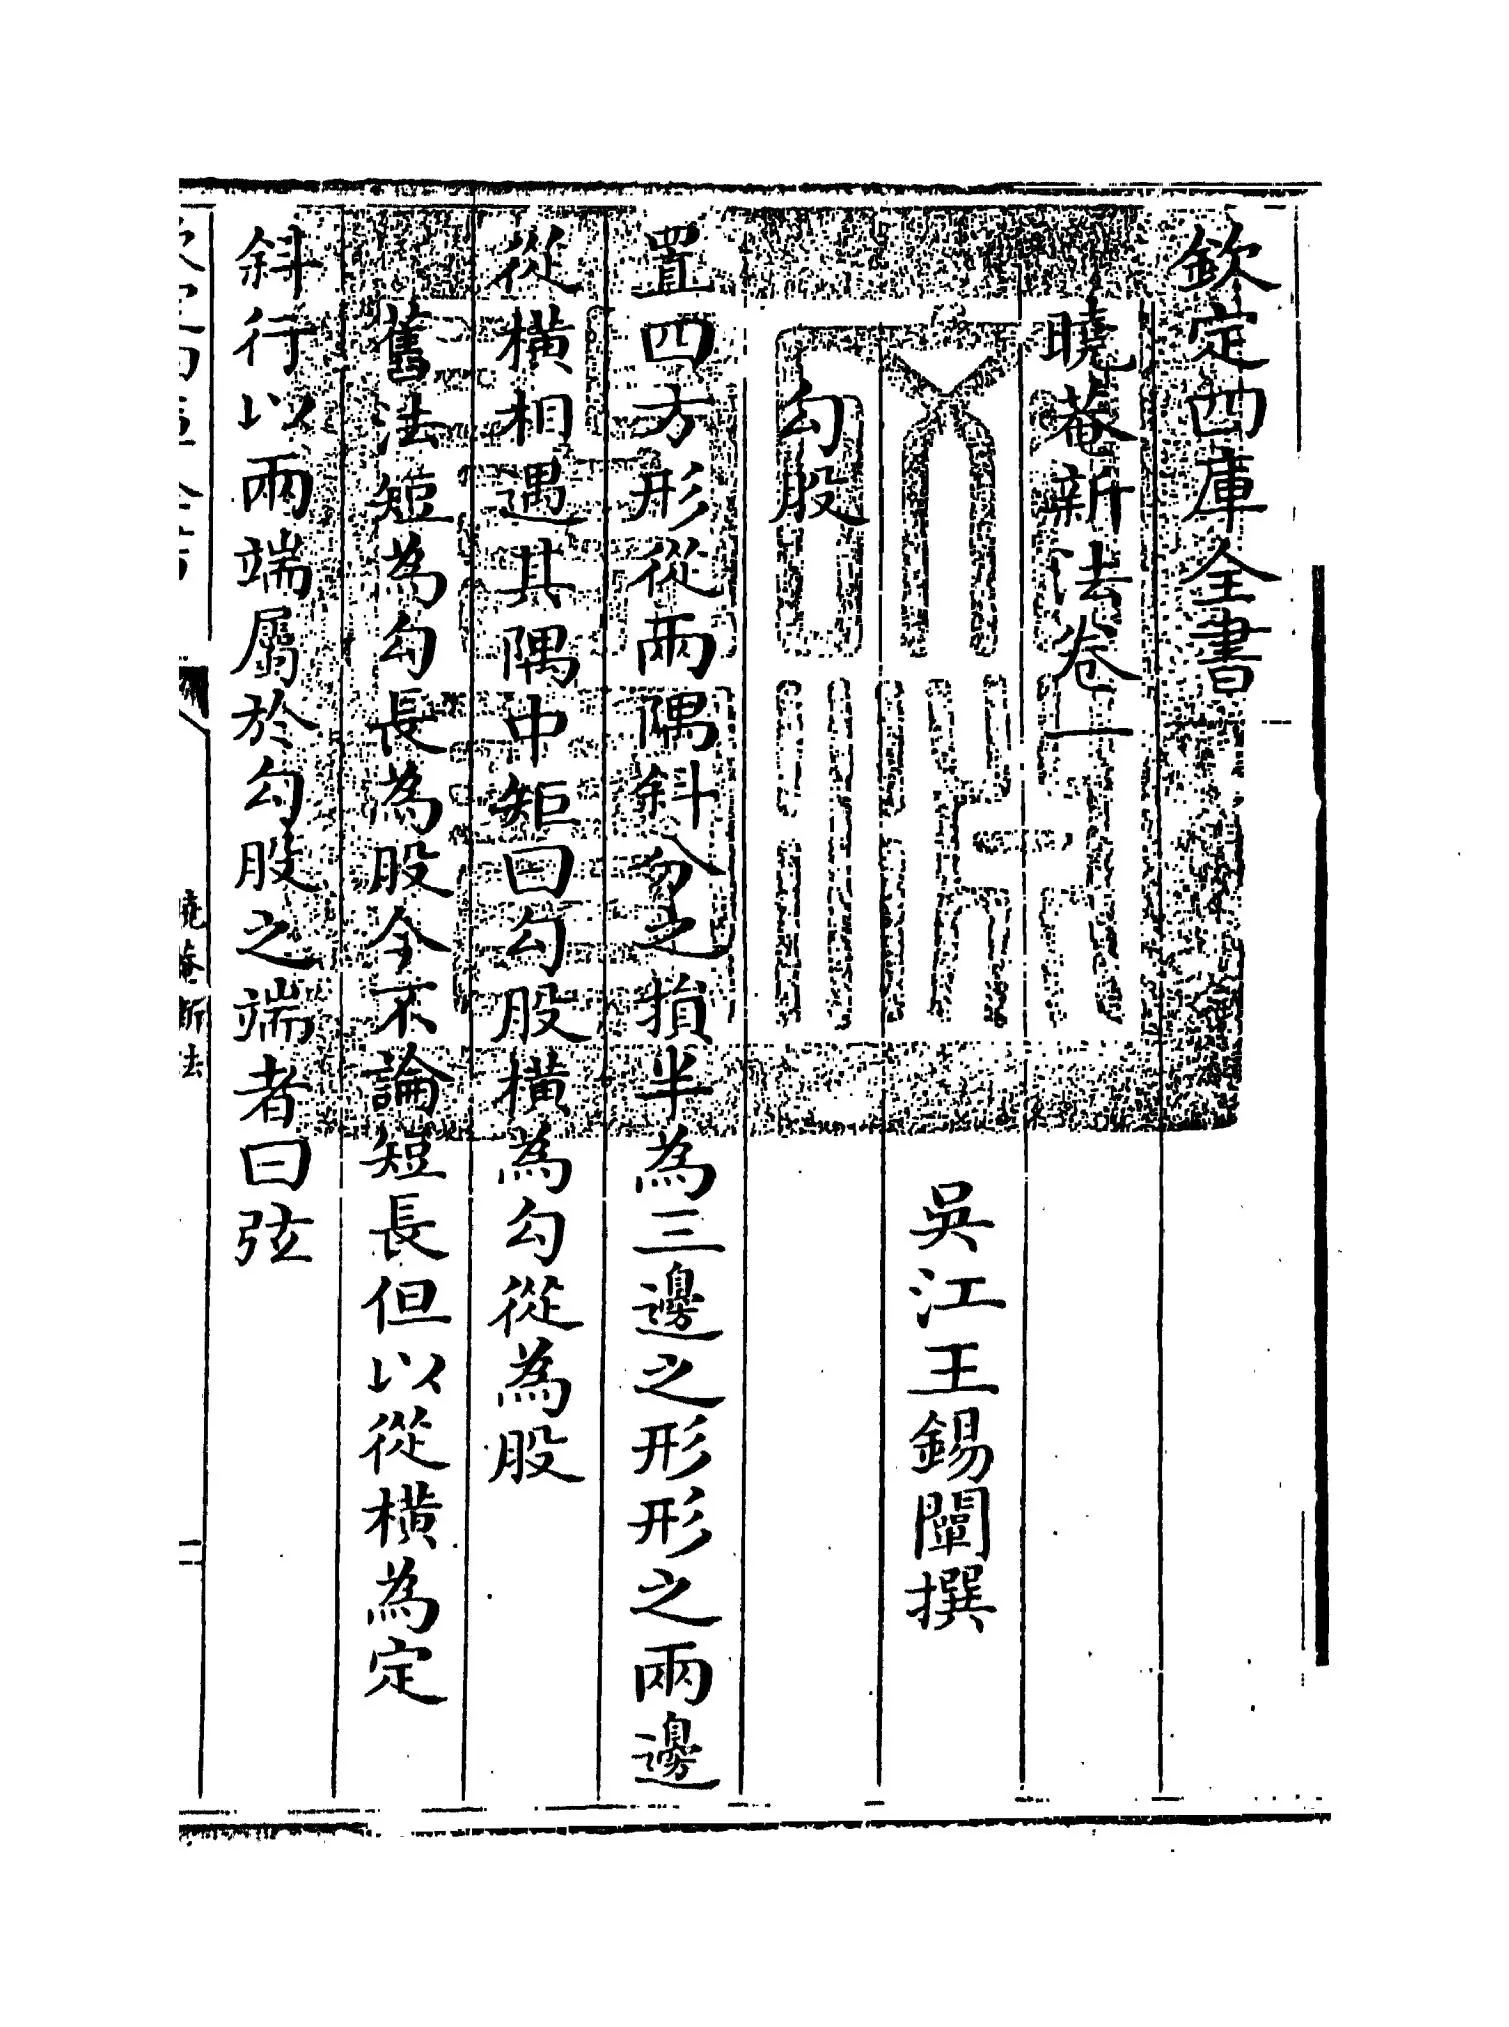 欽定四庫全書
曉菴新法卷一
吳江王錫闡撰
勾股
置四方形從兩隅斜分之損半為三邊之形形之兩邊
從橫相遇其隅中矩曰勾股橫為勾從為股
舊法短為勾長為股今不論短長但以從橫為定
斜行以兩端屬於勾股之端者曰弦
曉菴新法